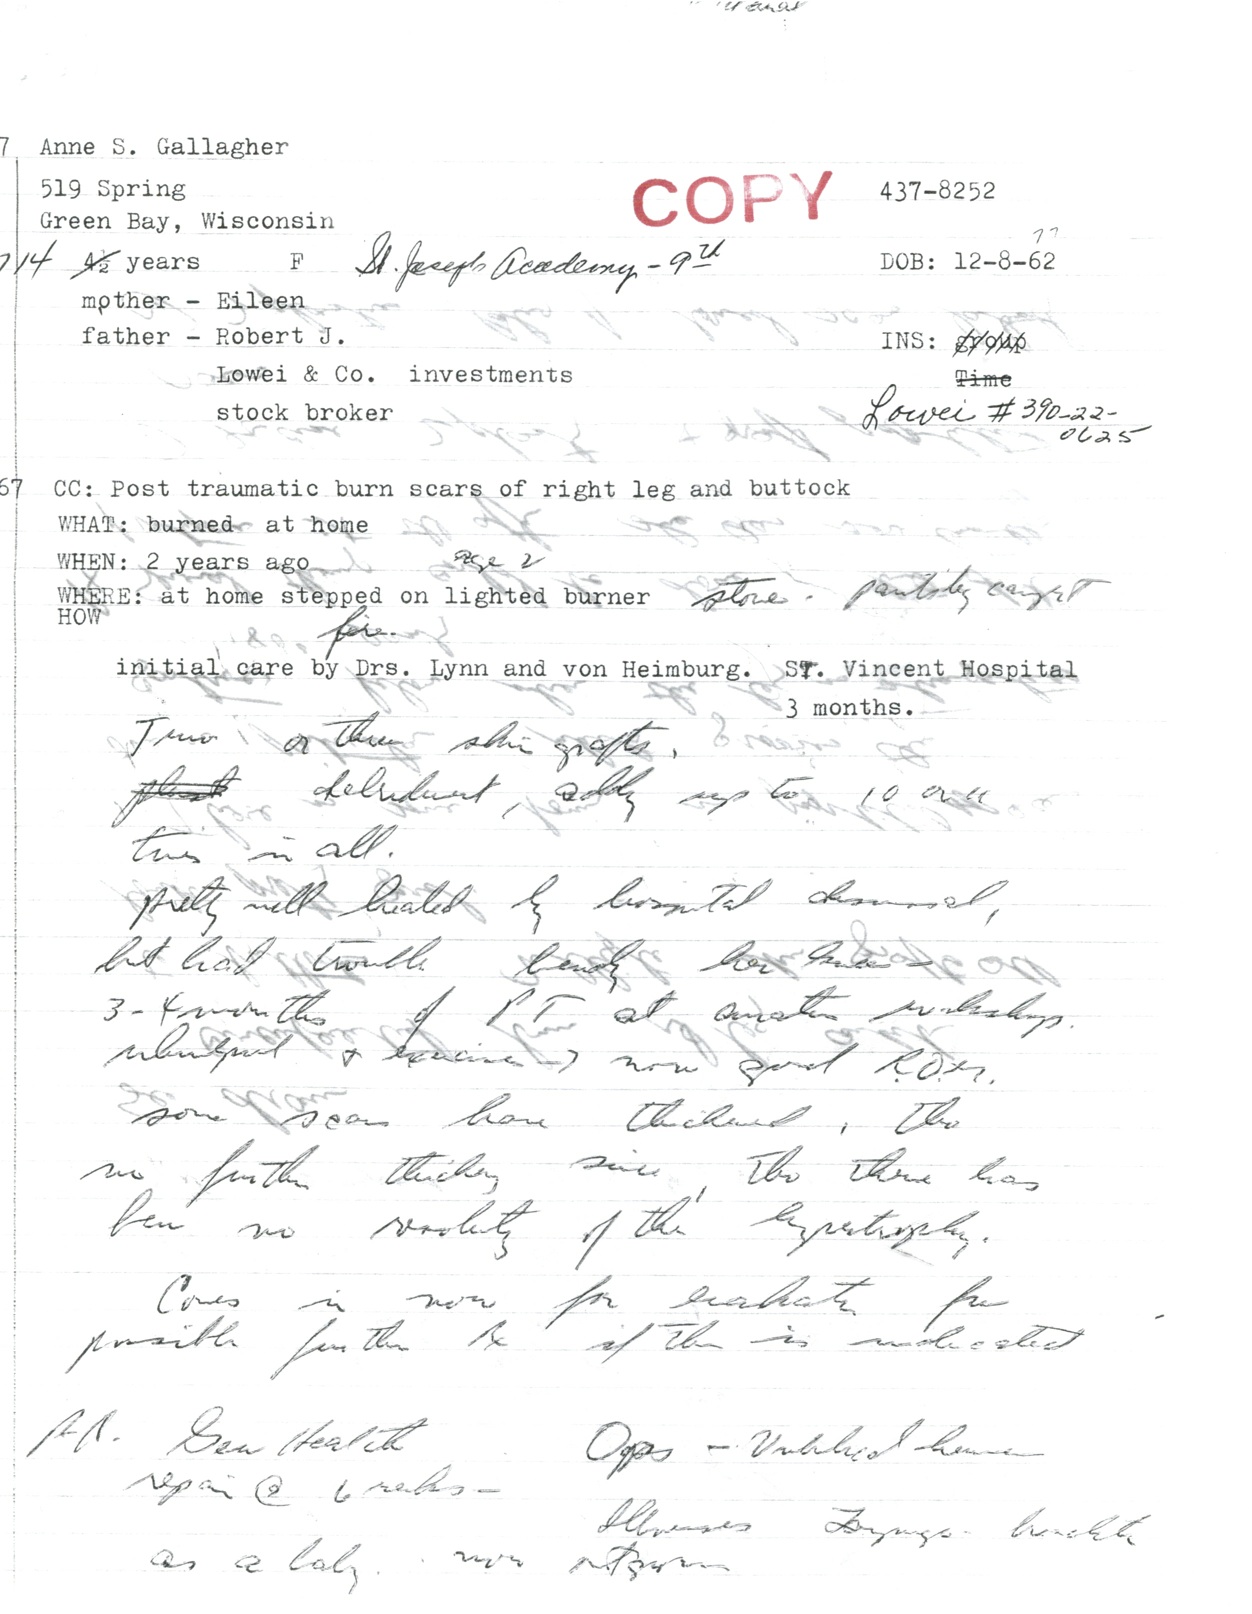 7 Anne S. Gallagher
519 Spring
COPY 437-8252
Green Bay, Wisconsin
14 4½ years F St. Joseph Academy - 9th DOB: 12-8-62
77
mother - Eileen
father - Robert J. INS: group
Lowei & Co. investments Time
stock broker Lowei # 390-22-
0625
67 CC: Post traumatic burn scars of right leg and buttock
WHAT: burned at home
WHEN: 2 years ago age 2
WHERE: at home stepped on lighted burner stove. pantsleg caught
HOW fire.
initial care by Drs. Lynn and von Heimburg. ST. Vincent Hospital
3 months.
Two or three skin grafts,
debridement, up to 10 or 11
times in all.
pretty well healed by hospital dismissal,
but had trouble bendg her knee -
3-4 months of PT at workshop.
whirlpool & exercises → now good R.O.M.
some scars have thickened, tho
no further thickeng since, tho there has
been no of the hypertrophy.
Comes in now for evaluatn for
possible further Rx if this is indicated
Gen Health Opps - Umbilical hernia
repair @ 6 weeks -
Illnesses
as a baby. now outgrown